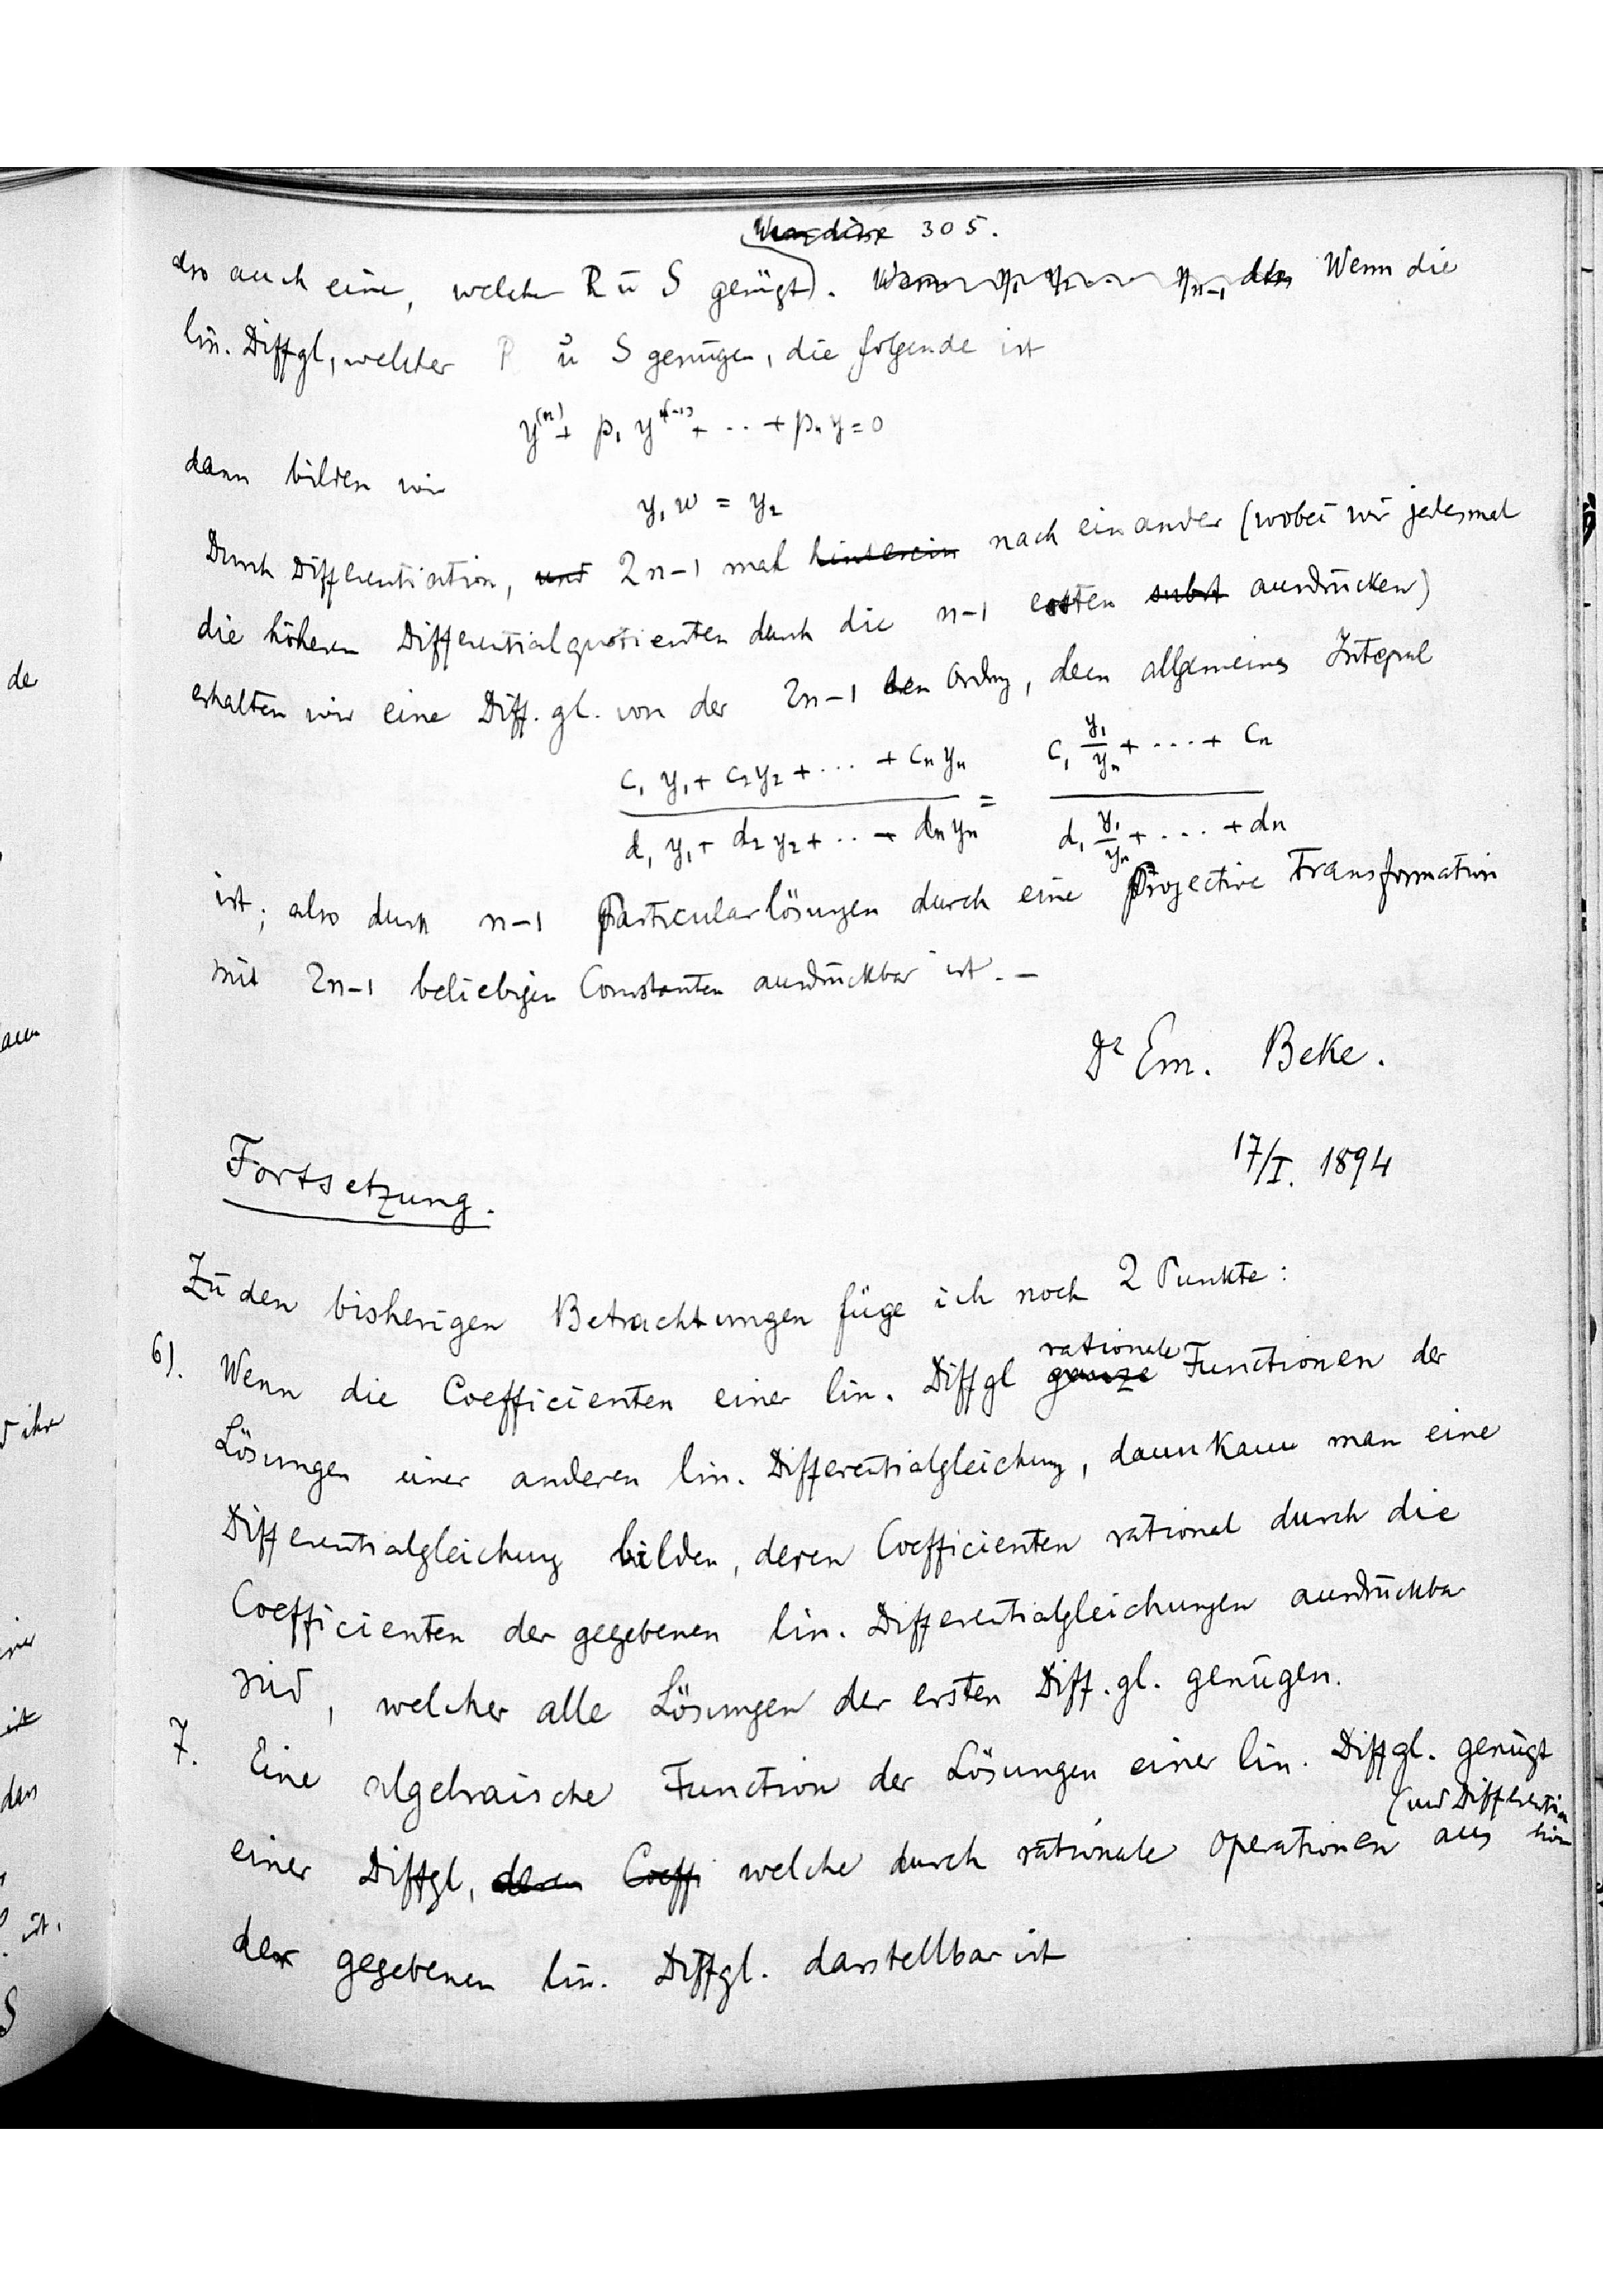 305.
also auch eine, welcher R ū S genügt). Wenn die
lin. Diffgl, welcher R ŭ S genügen, die folgende ist
y^(n) + p₁ y^(n-1) + ... + pₙ y = 0
dann bilden wir
y₁ w = y₂
Durch Differentiation, und 2n-1 mal hinterein nach einander (wobei wir jedesmal
die höheren Differentialquotienten durch die n-1 ersten subst ausdrücken)
erhalten wir eine Diff. gl. von der 2n-1 ten Ordng, deren allgemeines Integral
(c₁ y₁ + c₂ y₂ + ... + cₙ yₙ)/(d₁ y₁ + d₂ y₂ + ... + dₙ yₙ) = (c₁ y₁/yₙ + ... + cₙ)/(d₁ y₁/yₙ + ... + dₙ)
ist; also durch n-1 Particularlösungen durch eine Projective Transformation
mit 2n-1 beliebigen Constanten ausdrückbar ist. –
Dr Em. Beke.
17/I. 1894
Fortsetzung.
Zū den bisherigen Betrachtungen füge ich noch 2 Punkte:
6). Wenn die Coefficienten einer lin. Diffgl ganze rationale Functionen der
Lösungen einer anderen lin. Differentialgleichung, dann kann man eine
Differentialgleichung bilden, deren Coefficienten rational durch die
Coefficienten der gegebenen lin. Differentialgleichungen ausdrückbar
sind, welcher alle Lösungen der ersten Diff. gl. genügen.
7. Eine algebraische Function der Lösungen einer lin. Diffgl. genügt
(und Differentia
einer Diffgl, deren Coeff welche durch rationale Operationen aus
der gegebenen lin. Diffgl. darstellbar ist